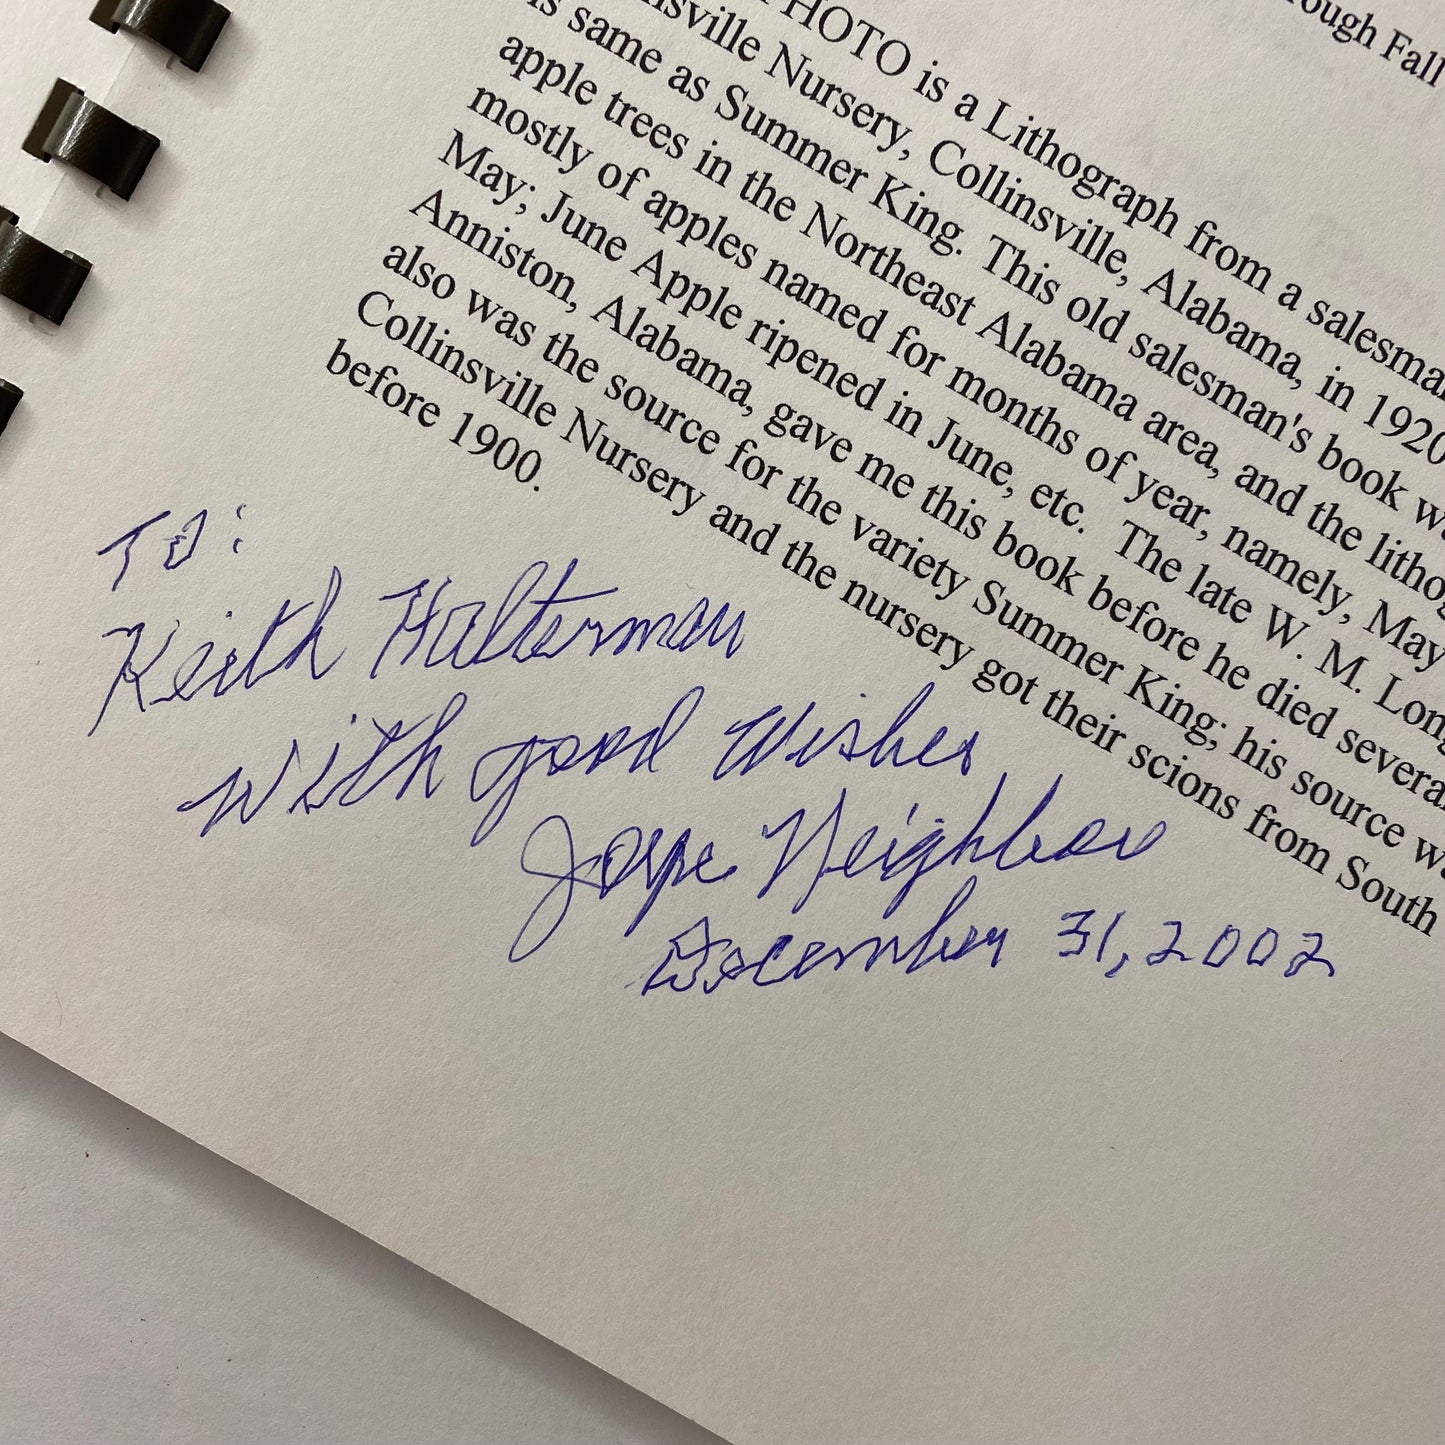 ough Fall
HOTO is a Lithograph from a salesma
nsville Nursery, Collinsville, Alabama, in 1920
is same as Summer King. This old salesman's book w
apple trees in the Northeast Alabama area, and the lithog
mostly of apples named for months of year, namely, May
May; June Apple ripened in June, etc. The late W. M. Long
Anniston, Alabama, gave me this book before he died severa
also was the source for the variety Summer King; his source w
Collinsville Nursery and the nursery got their scions from South
before 1900.
To:
Keith Halterman
with good Wishes
Joyce Neighbors
December 31, 2002